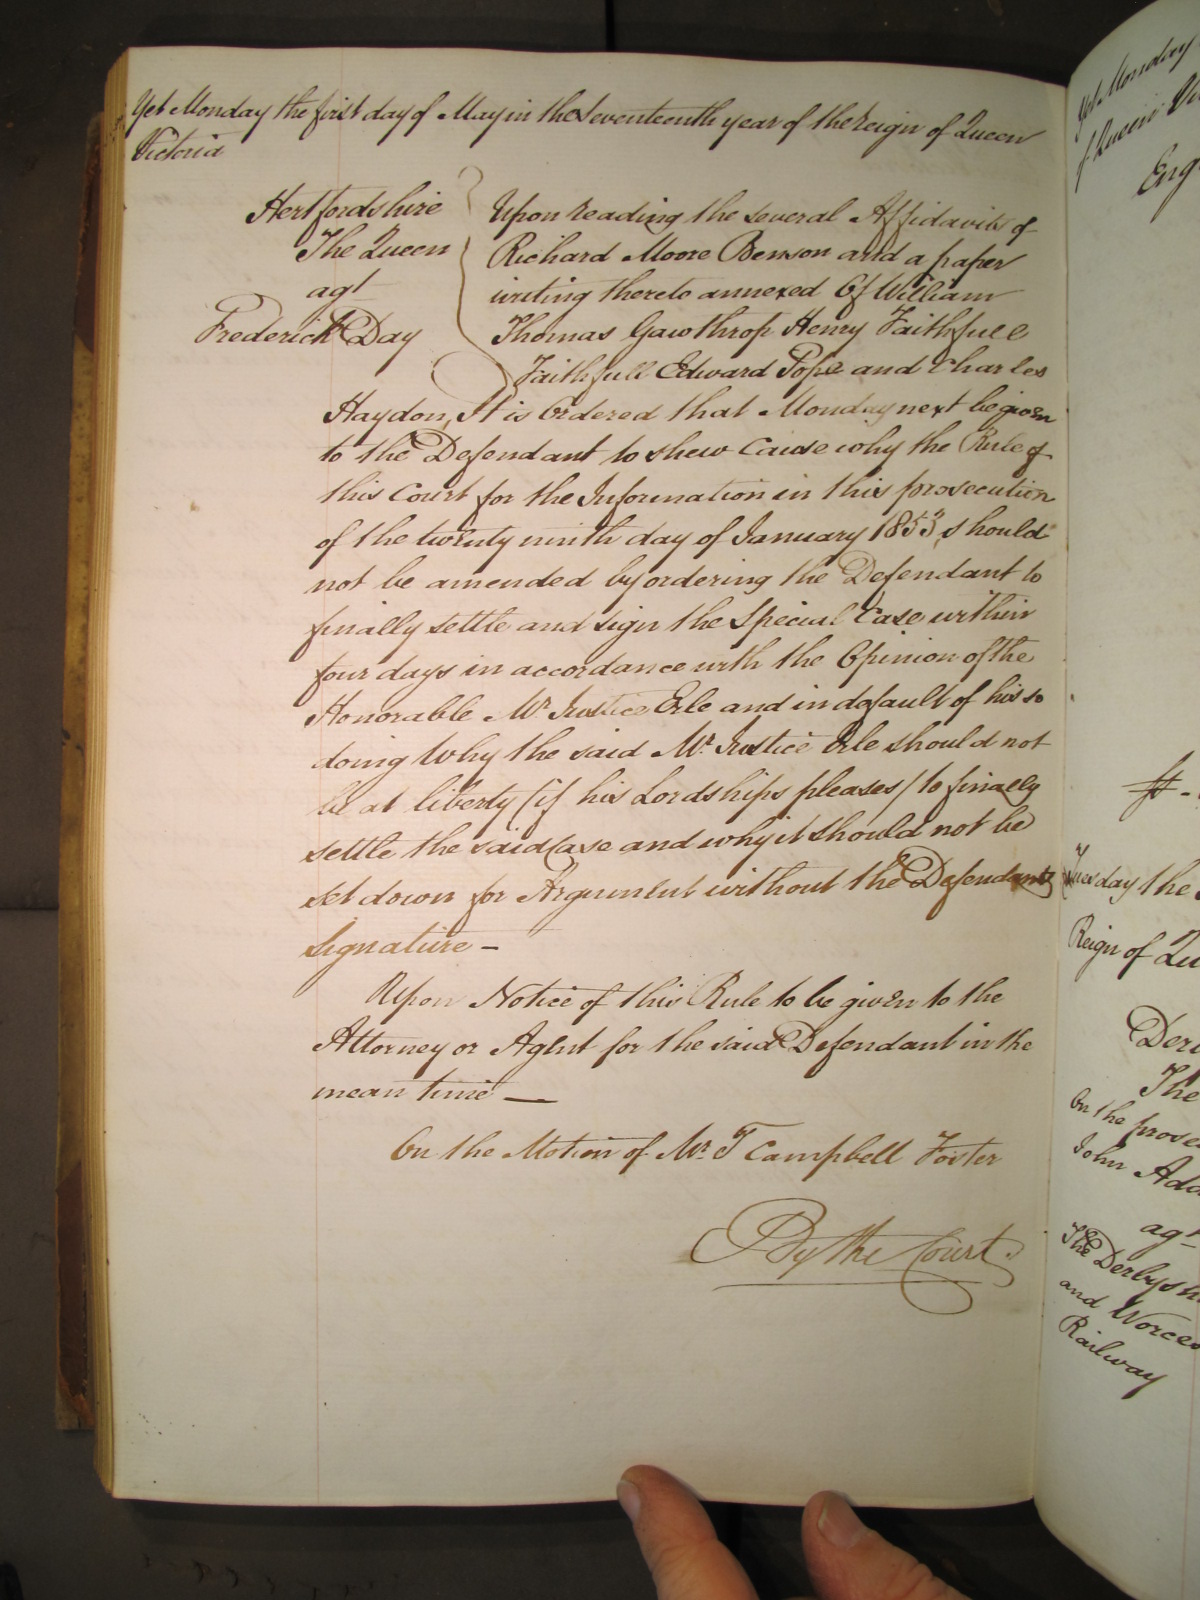 Yet Monday the first day of May in the Seventeenth year of the Reign of Queen
Victoria
Hertfordshire
The Queen
agt
Frederick Day
Upon reading the several Affidavits of
Richard Moore Benson and a paper
writing thereto annexed Of William
Thomas Gawthrop Henry Faithfull
Faithfull Edward Pope and Charles
Haydon, It is Ordered that Monday next be given
to the Defendant to shew Cause why the Rule of
this Court for the Information in this prosecution
of the twenty ninth day of January 1853, should
not be amended by ordering the Defendant to
finally settle and sign the Special Case within
four days in accordance with the Opinion of the
Honorable Mr. Justice Erle and in default of his so
doing Why the said Mr. Justice Erle should not
be at liberty (if his Lordships pleases) to finally
settle the said Case and why it should not be
set down for Argument without the Defendants
Signature -
Upon Notice of this Rule to be given to the
Attorney or Agent for the said Defendant in the
mean time —
On the Motion of Mr. T Campbell Foster
By the Court.
Yet Monday
f Queen Vi
Eng
Tuesday the
Reign of Qu
Derb
The
On the prosec
John Ada
agt
The Derbysh
and Worces
Railway